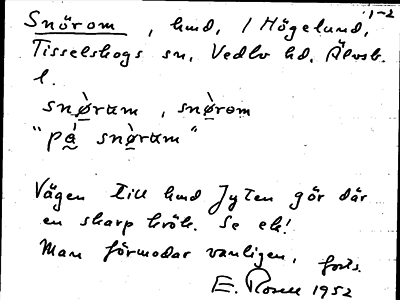 1-2
Snörom, hmd, i Högelund,
Tisselskogs sn, Vedbo hd. Älvsb.
l.
snø̀ram, snø̀rom
"på snø̀ram"
Vägen till hmd Jyten gör där
en skarp krök. Se ek!
Man förmodar vanligen, forts.
E. Rosell 1952